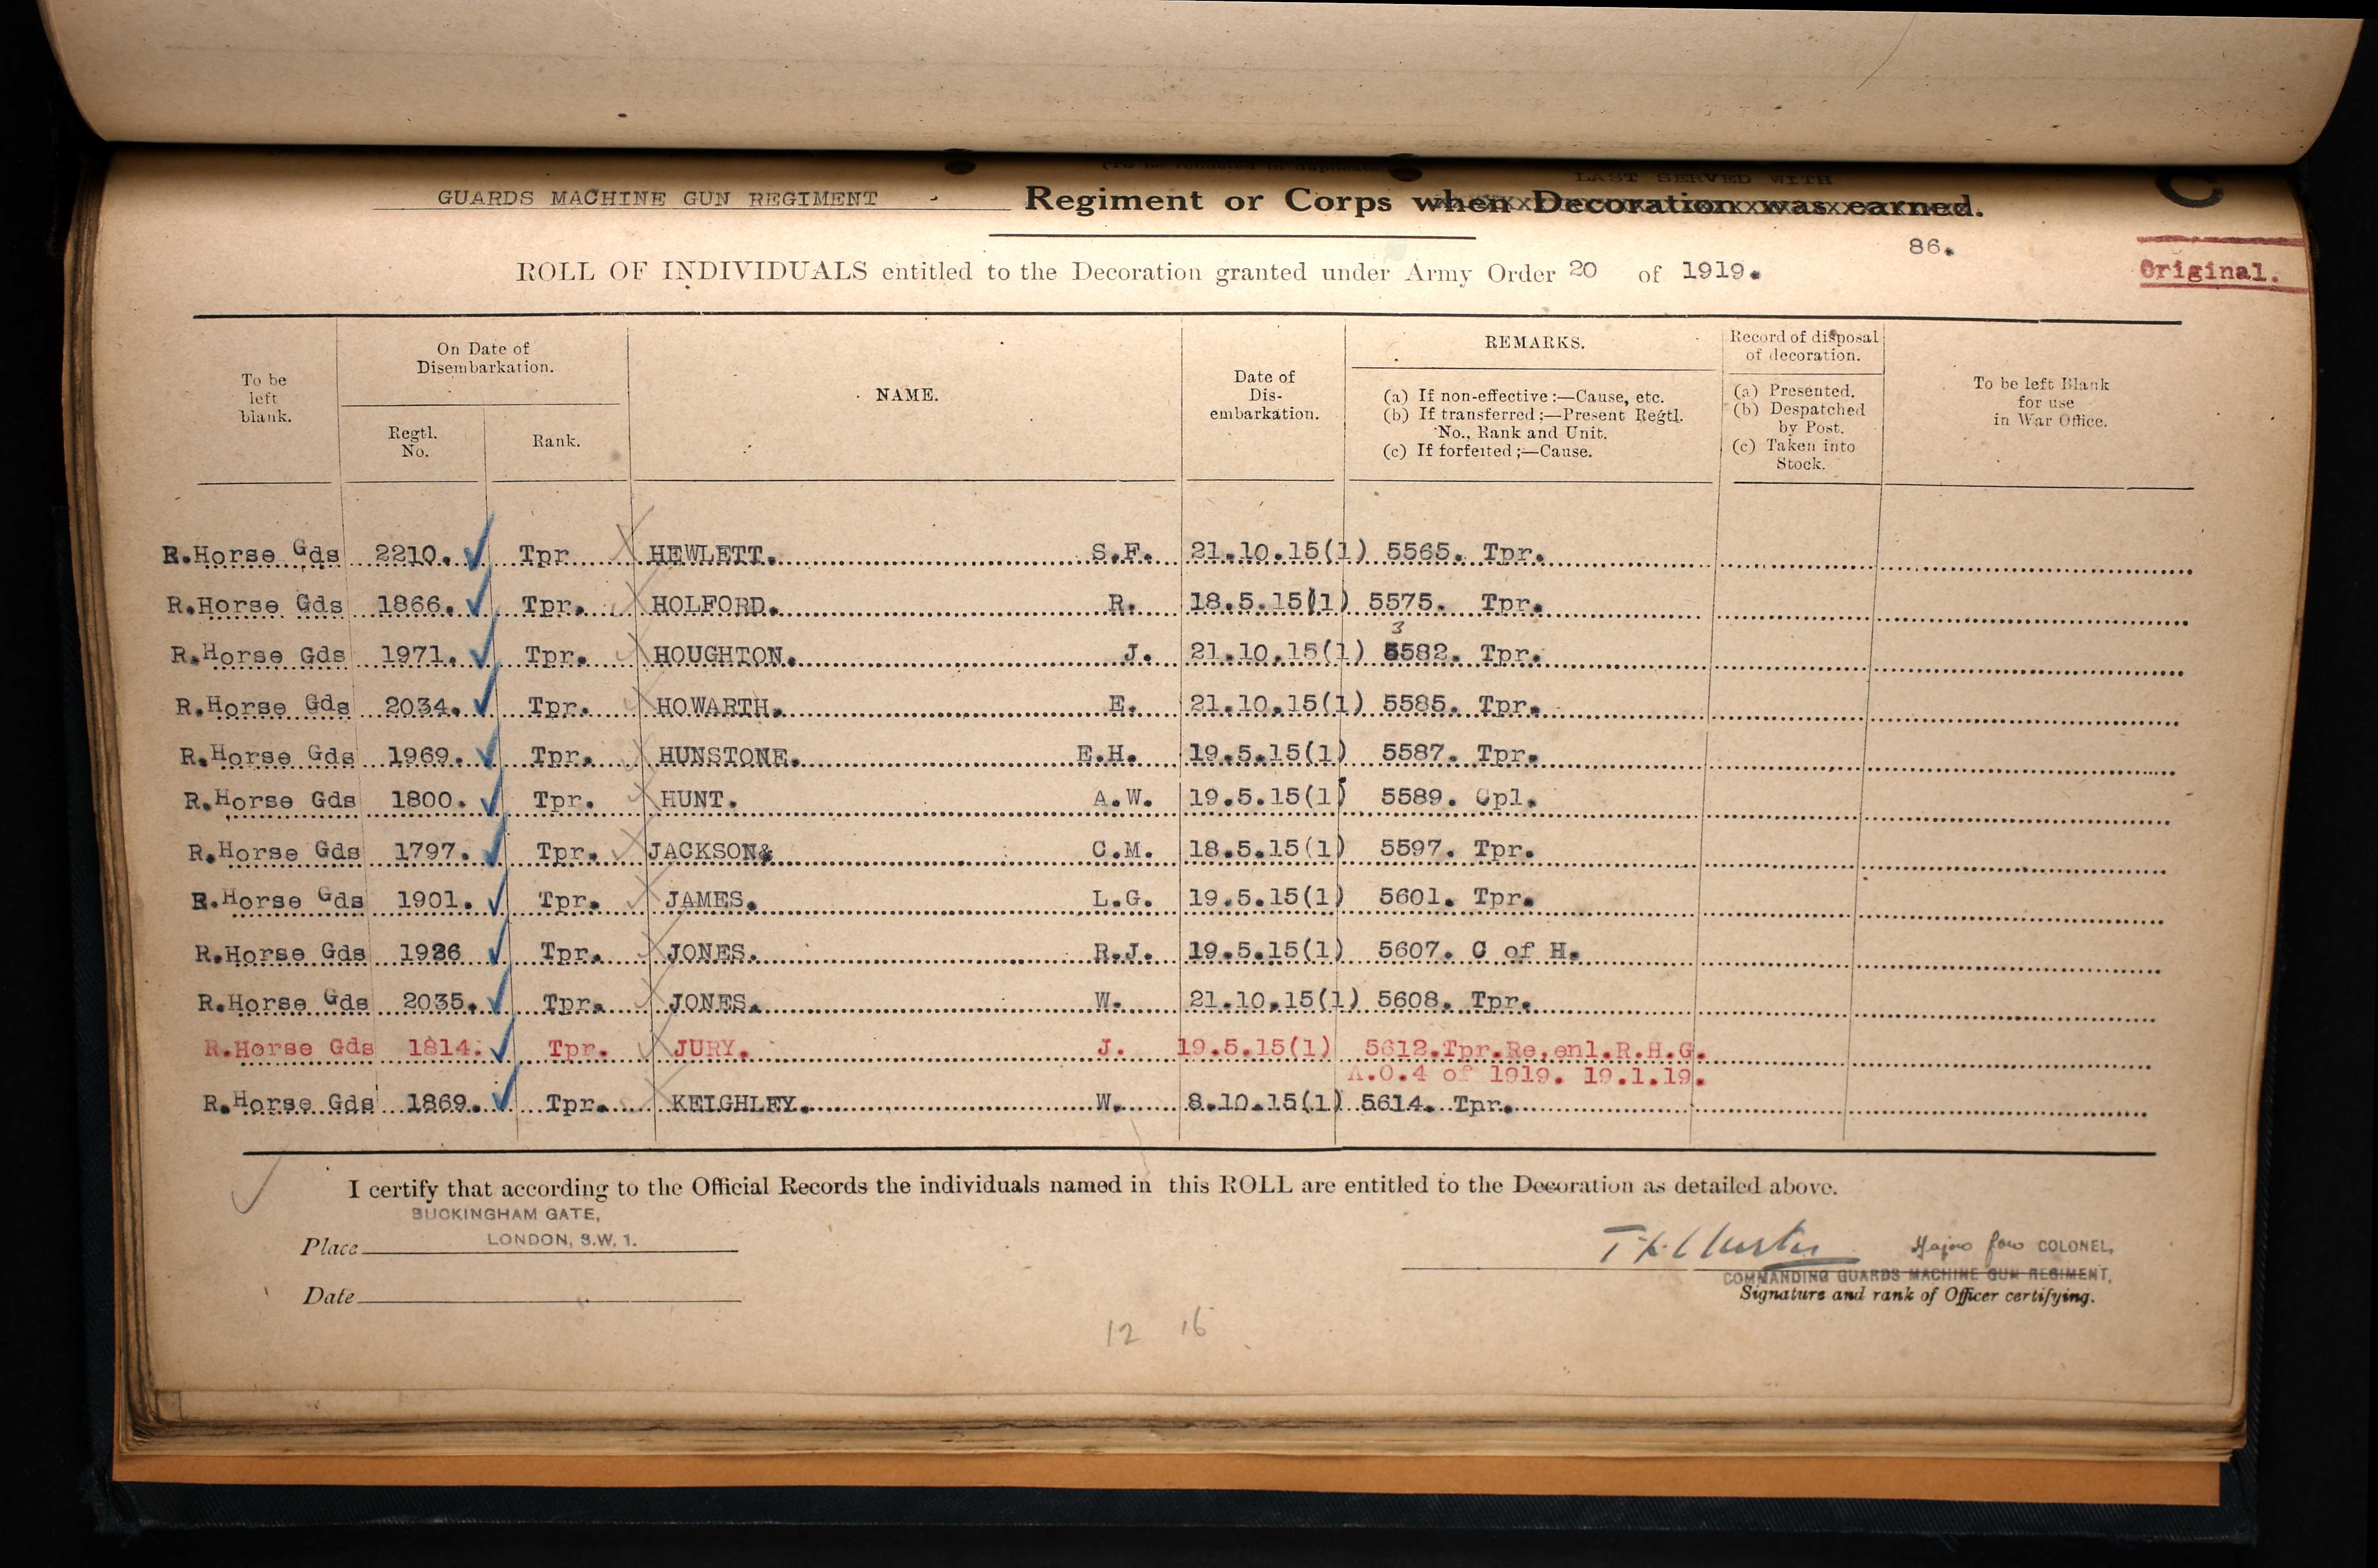 LAST SERVED WITH
GUARDS MACHINE GUN REGIMENT Regiment or Corps when Decoration was earned.
86.
ROLL OF INDIVIDUALS entitled to the Decoration granted under Army Order 20 of 1919.
Original.
To be left blank.
On Date of Disembarkation.
Regtl. No.
Rank.
NAME.
Date of Dis-embarkation.
REMARKS.
(a) If non-effective:—Cause, etc.
(b) If transferred;—Present Regtl. No., Rank and Unit.
(c) If forfeited;—Cause.
Record of disposal of decoration.
(a) Presented.
(b) Despatched by Post.
(c) Taken into Stock.
To be left Blank for use in War Office.
R.Horse Gds 2210. Tpr HEWLETT. S.F. 21.10.15(1) 5565. Tpr.
R.Horse Gds 1866. Tpr. HOLFORD. R. 18.5.15(1) 5575. Tpr.
3
R.Horse Gds 1971. Tpr. HOUGHTON. J. 21.10.15(1) 5582. Tpr.
R.Horse Gds 2034. Tpr. HOWARTH. E. 21.10.15(1) 5585. Tpr.
R.Horse Gds 1969. Tpr. HUNSTONE. E.H. 19.5.15(1) 5587. Tpr.
R.Horse Gds 1800. Tpr. HUNT. A.W. 19.5.15(1) 5589. Cpl.
R.Horse Gds 1797. Tpr. JACKSON& C.M. 18.5.15(1) 5597. Tpr.
R.Horse Gds 1901. Tpr. JAMES. L.G. 19.5.15(1) 5601. Tpr.
R.Horse Gds 1926 Tpr. JONES. R.J. 19.5.15(1) 5607. C of H.
R.Horse Gds 2035. Tpr. JONES. W. 21.10.15(1) 5608. Tpr.
R.Horse Gds 1814. Tpr. JURY. J. 19.5.15(1) 5612.Tpr.Re,enl.R.H.G.
A.O.4 of 1919. 19.1.19.
R.Horse Gds 1869. Tpr. KEIGHLEY. W. 8.10.15(1) 5614. Tpr.
I certify that according to the Official Records the individuals named in this ROLL are entitled to the Decoration as detailed above.
BUCKINGHAM GATE,
Place LONDON, S.W. 1.
Major for COLONEL,
COMMANDING GUARDS MACHINE GUN REGIMENT,
Date
Signature and rank of Officer certifying.
12 16